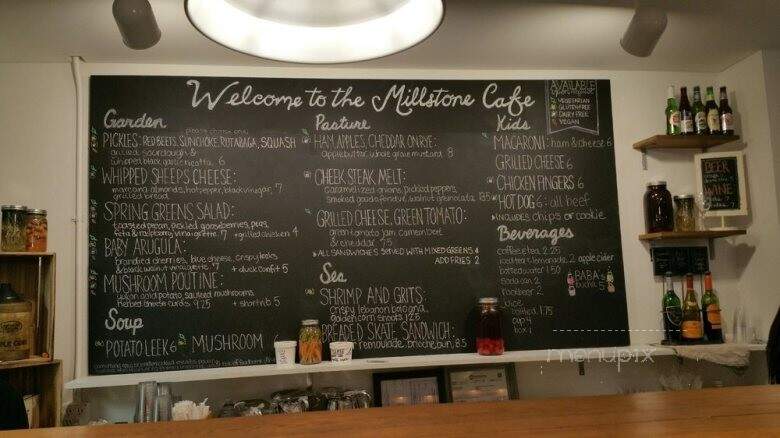 Welcome to the Millstone Cafe
AVAILABLE
VEGETARIAN
GLUTEN FREE
DAIRY FREE
VEGAN
Garden
PICKLES: RED BEETS, SUNCHOKE, RUTABAGA, SQUASH
grilled sourdough &
whipped black garlic ricotta 6
WHIPPED SHEEPS CHEESE:
marcona almonds, hot pepper, black vinegar, 7
grilled bread
SPRING GREENS SALAD:
toasted pecan, pickled gooseberries, peas,
feta & raspberry vinaigrette 7 + grilled chicken 4
BABY ARUGULA:
brandied cherries, blue cheese, crispy leeks
& black walnut vinaigrette 7 + duck confit 5
MUSHROOM POUTINE:
yukon gold potato, sauteed mushrooms,
herbed cheese curds 9.25 + shortrib 5
Soup
POTATO LEEK MUSHROOM
Pasture
HAM, APPLES, CHEDDAR ON RYE:
apple butter, whole grain mustard 8
CHEEK STEAK MELT:
caramelized onions, pickled peppers,
smoked gouda fondue, walnut gremolata 13.5
GRILLED CHEESE, GREEN TOMATO:
green tomato jam, camembert
& cheddar 7.5
ALL SANDWICHES SERVED WITH MIXED GREENS 4
ADD FRIES 2
Sea
SHRIMP AND GRITS:
crispy lebanon bologna,
golden corn shoots 12.5
BREADED SKATE SANDWICH:
remoulade, brioche bun, 8.5
Kids
MACARONI: ham & cheese 6
GRILLED CHEESE 6
CHICKEN FINGERS 6
HOT DOG 6: all beef
INCLUDES chips or cookie
Beverages
coffee, tea 2.25
iced tea + lemonade 2
bottled water 1.50
soda can 2
root beer 2
juice
bottled 1.75
cup 4
box 1
apple cider
BABA'S
bucha 5
BEER
WINE
menupix